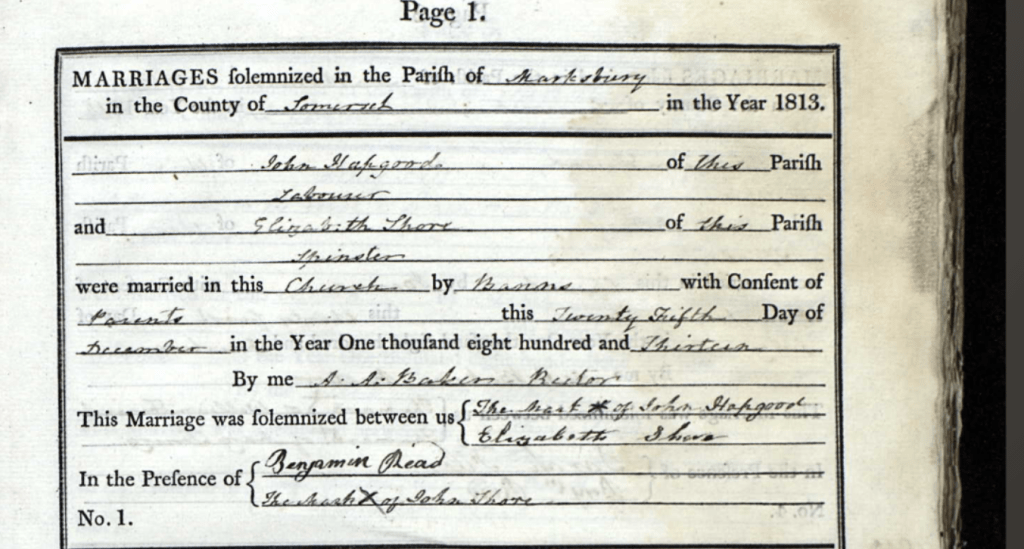 Page 1.
MARRIAGES ſolemnized in the Pariſh of Marksbury
in the County of Somerset in the Year 1813.
John Hapgood of this Pariſh
Labourer
and Elizabeth Shore of this Pariſh
Spinster
were married in this Church by Banns with Conſent of
Parents this Twenty Fifth Day of
December in the Year One thouſand eight hundred and Thirteen
By me A. A. Baker Rector
This Marriage was ſolemnized between us { The Mark X of John Hapgood
Elizabeth Shore
In the Preſence of { Benjamin Read
The Mark X of John Shore
No. 1.